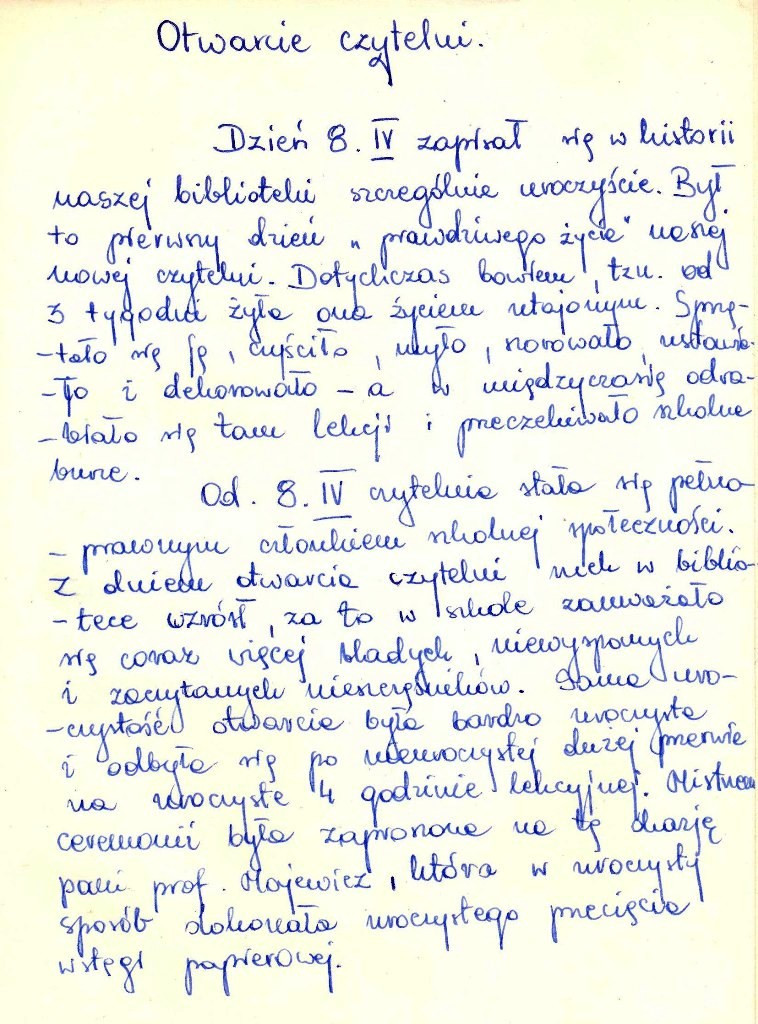 Otwarcie czytelni.
Dzień 8. IV zapisał się w historii
naszej biblioteki szczególnie uroczyście. Był
to pierwszy dzień „prawdziwego życia" naszej
nowej czytelni. Dotychczas bowiem, tzn. od
3 tygodni żyła ona życiem utajonym. Sprzą-
-tało się ją, czyściło, myło, surowało, ustawia-
-ło i dekorowało – a w międzyczasie odra-
-biało się tam lekcji i przeczekiwało szkolne
burze.
Od. 8. IV czytelnia stała się pełno-
- prawnym członkiem szkolnej społeczności.
Z dniem otwarcia czytelni ruch w biblio-
- tece wzrósł, za to w szkole zauważało
się coraz więcej bladych, niewyspanych
i zaczytanych nieszczęśników. Sama uro-
-czystość otwarcia była bardzo uroczysta
i odbyła się po nieuroczystej dużej przerwie
na uroczyste 4 godzinie lekcyjnej. Mistrzem
ceremonii była zaproszona na tę okazję
pani prof. Majewicz, która w uroczysty
sposób dokonała uroczystego przecięcia
wstęgi papierowej.